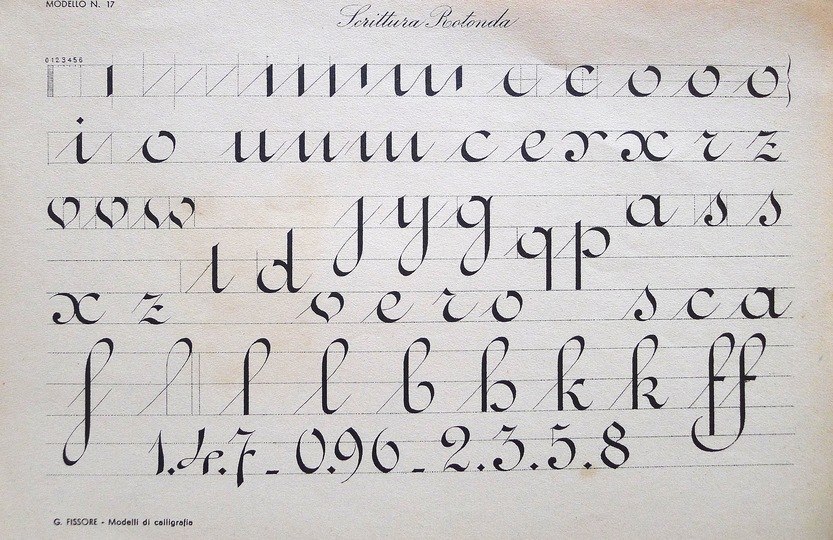 MODELLO N. 17
Scrittura Rotonda
0 1 2 3 4 5 6
ı c c o o o
i o u n m c e r x r z
v v w j y g a s s
t d q p
x z v e r o s c a
f l l b h k k ff
1.4.7 - 0.96 - 2.3.5.8
G. FISSORE - Modelli di calligrafia